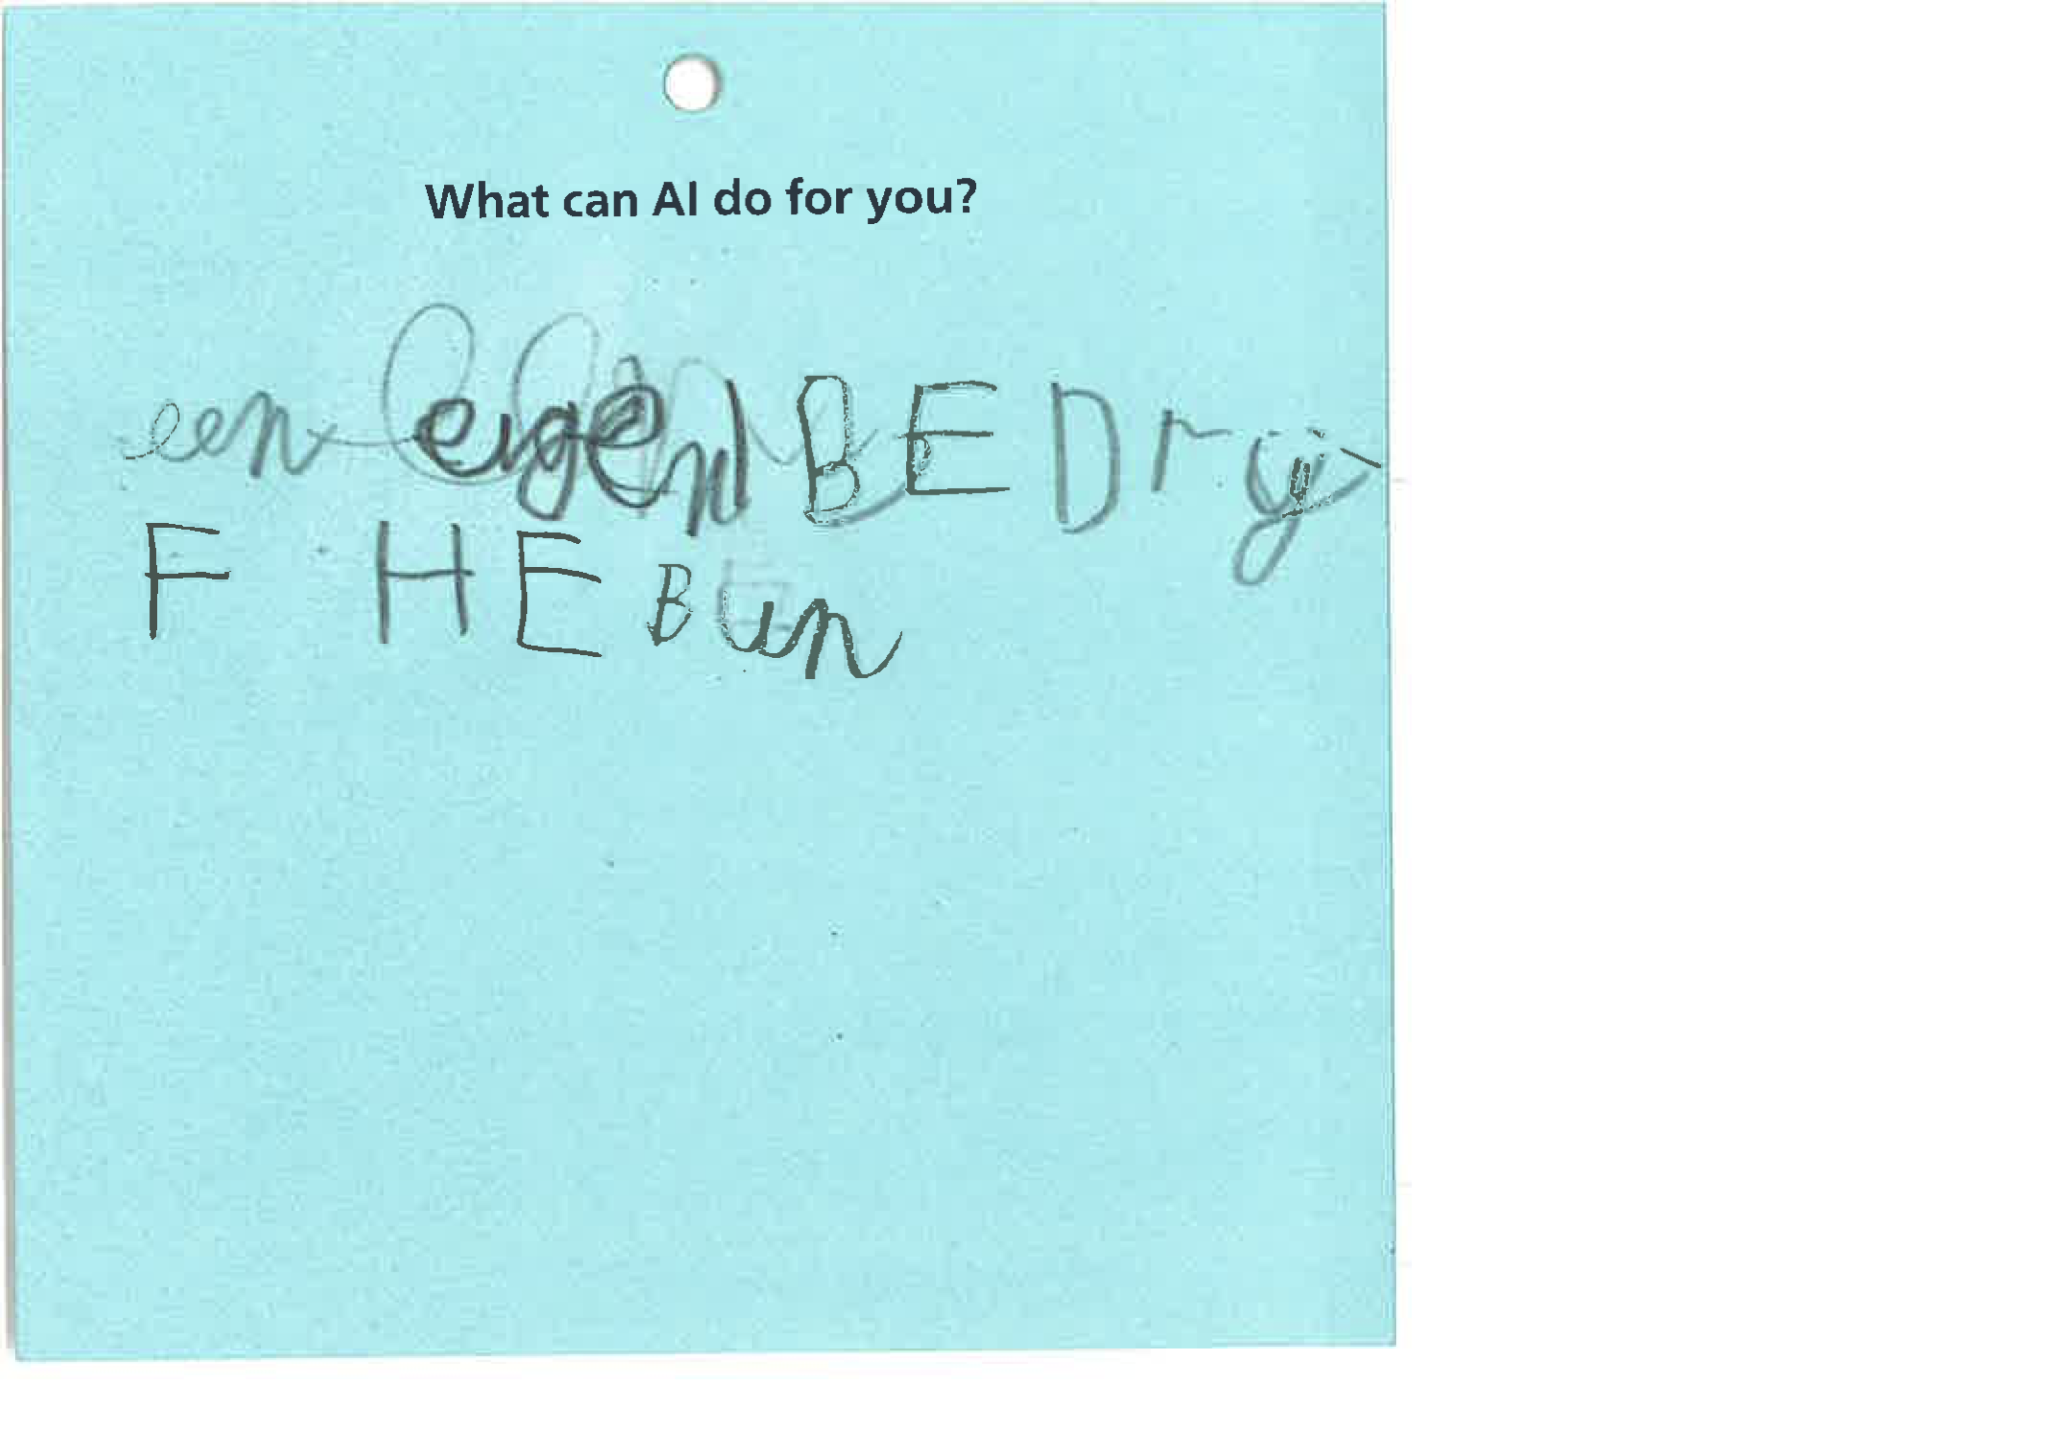 What can AI do for you?
een eigen BEDrij
F HEBen